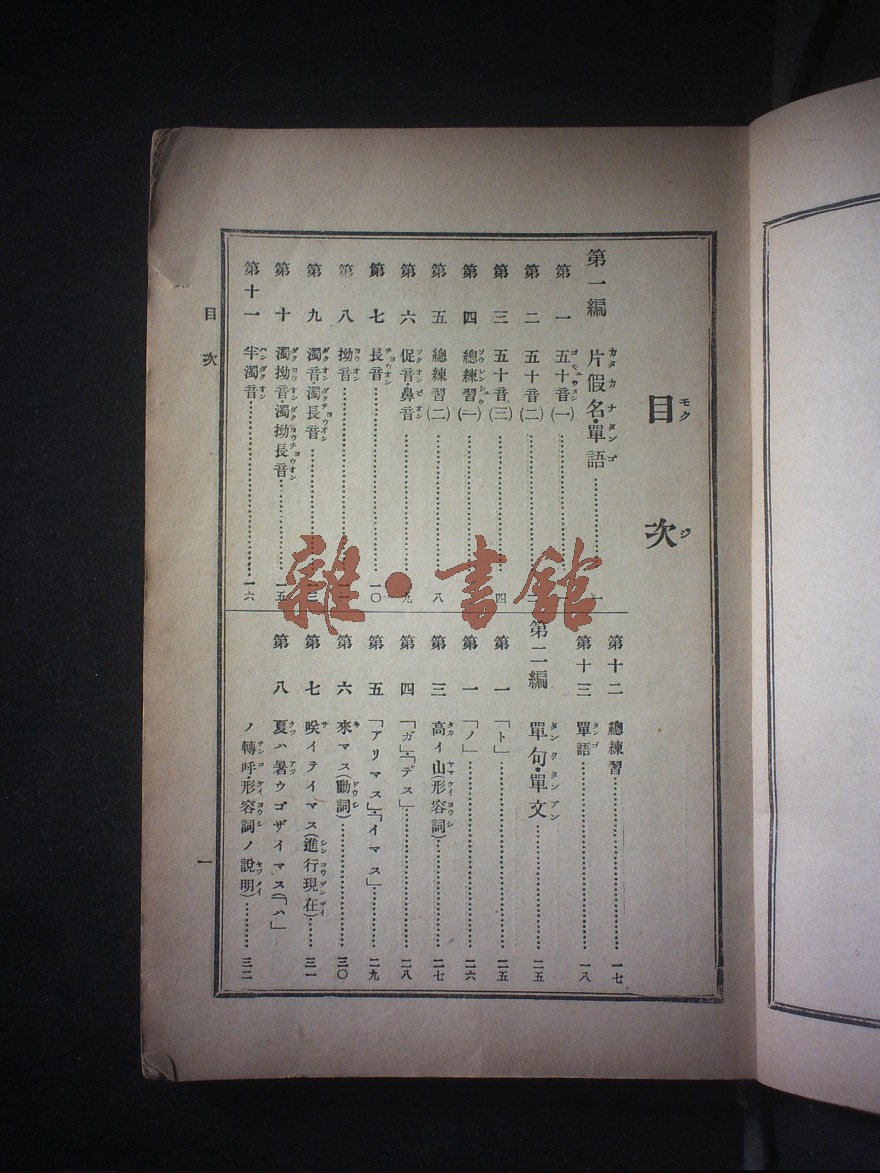 目次
第一編 片假名・單語…………一
第一 五十音(一)…………一
第二 五十音(二)…………
第三 五十音(三)…………四
第四 總練習(一)…………
第五 總練習(二)…………八
第六 促音鼻音…………九
第七 長音…………一〇
第八 拗音…………
第九 濁音・濁長音…………三
第十 濁拗音・濁拗長音…………一五
第十一 半濁音…………一六
第十二 總練習…………一七
第十三 單語…………一八
第二編 單句・單文…………二五
第一 「ト」…………二五
第一 「ノ」…………二六
第三 高イ山(形容詞)…………二七
第四 「ガ」・「デス」…………二八
第五 「アリマス」・「イマス」…………二九
第六 來マス(動詞)…………三〇
第七 咲イテイマス(進行現在)…………三一
第八 夏ハ暑ウゴザイマス(「ハ」
ノ轉呼・形容詞ノ説明)…………三二
目次 一
雜・書館